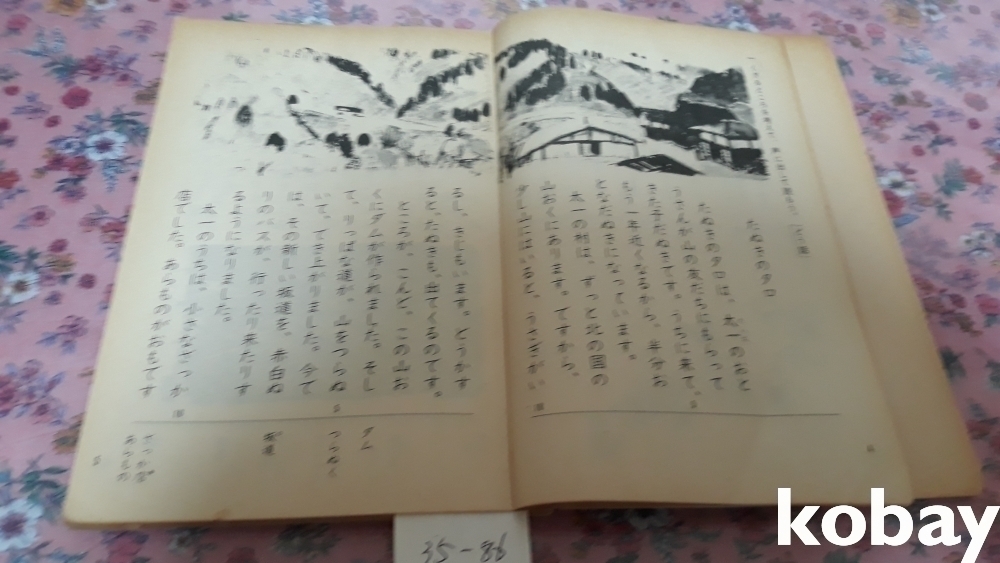 たぬきのタロ
たぬきのタロは、太一のおと
うさんが山の友だちにもらって
きた子だぬきです。うちに来て、
もう一年近くなるから、半分お
となだぬきになっています。
太一の村は、ずっと北の国の
山おくにあります。ですから、
少し山にはいると、うさぎがい
るし、きじもいます。どうかす
ると、たぬきも、出てくるのです。
ところが、こんど、この山お
くにダムが作られました。そし
て、りっぱな道が、山をつらぬ
いて、でき上がりました。今で
は、その新しい坂道を、赤白ぬ
りのバスが、行ったり来たりす
るようになりました。
太一のうちは、小さなざっか
屋でした。あらものがおもです
5
10
5
10
ダム
つらぬく
坂道
ざっか屋
あらもの
35-86
kobay